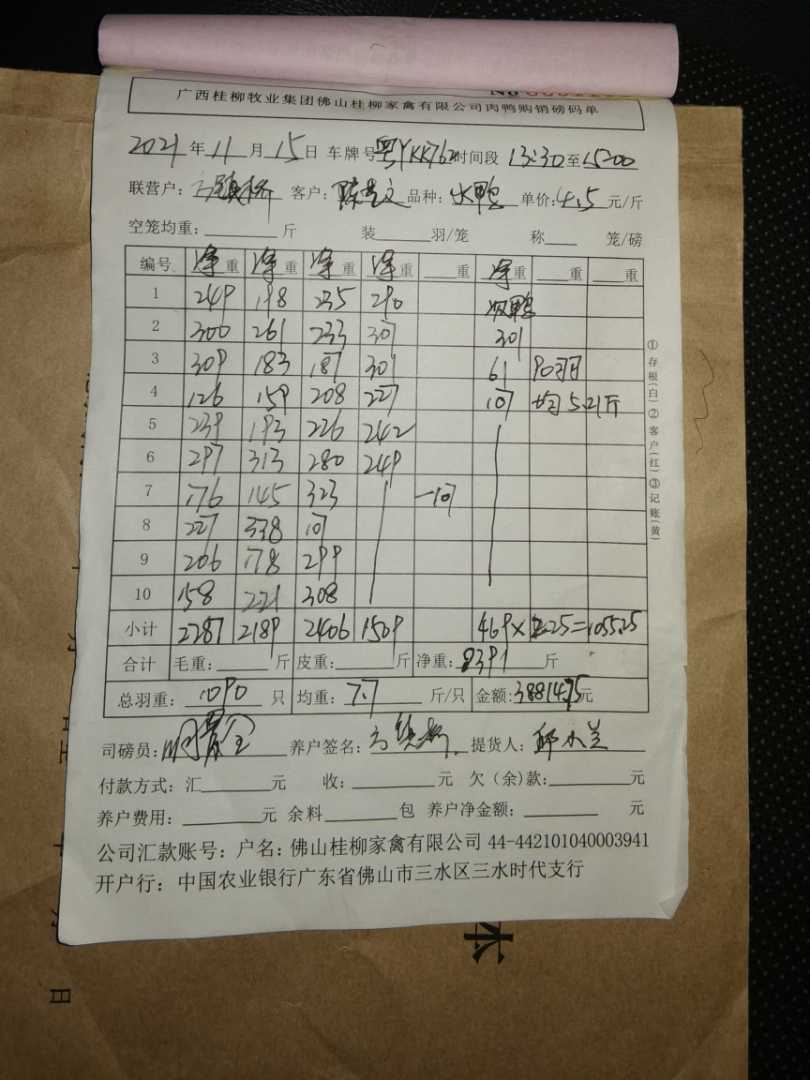 广西桂柳牧业集团佛山桂柳家禽有限公司肉鸭购销磅码单
2021年11月15日 车牌号粤YKK762时间段 13:30至15:00
联营户： 客户： 品种：水鸭 单价：4.5元/斤
空笼均重： 斤 装 羽/笼 称 笼/磅
编号 净重 净重 净重 净重 重 净重 重 重
1 249 198 235 290
2 300 261 233 307 301
3 309 183 187 301 61 90羽
4 126 159 208 227 107 均5.21斤
5 239 193 226 242
6 297 313 280 249
7 176 145 323 -107
8 227 338 107
9 206 178 299
10 158 221 308
小计 2287 2189 2406 1509 469×2.25=1055.25
合计 毛重： 斤 皮重： 斤 净重：8391斤
总羽重：1090只 均重：7.7斤/只 金额：38814.75元
司磅员： 养户签名： 提货人：邱水兰
付款方式：汇 元 收： 元 欠（余）款： 元
养户费用： 元 余料 包 养户净金额： 元
公司汇款账号：户名：佛山桂柳家禽有限公司 44-442101040003941
开户行：中国农业银行广东省佛山市三水区三水时代支行
①存根(白)②客户(红)③记账(黄)
日